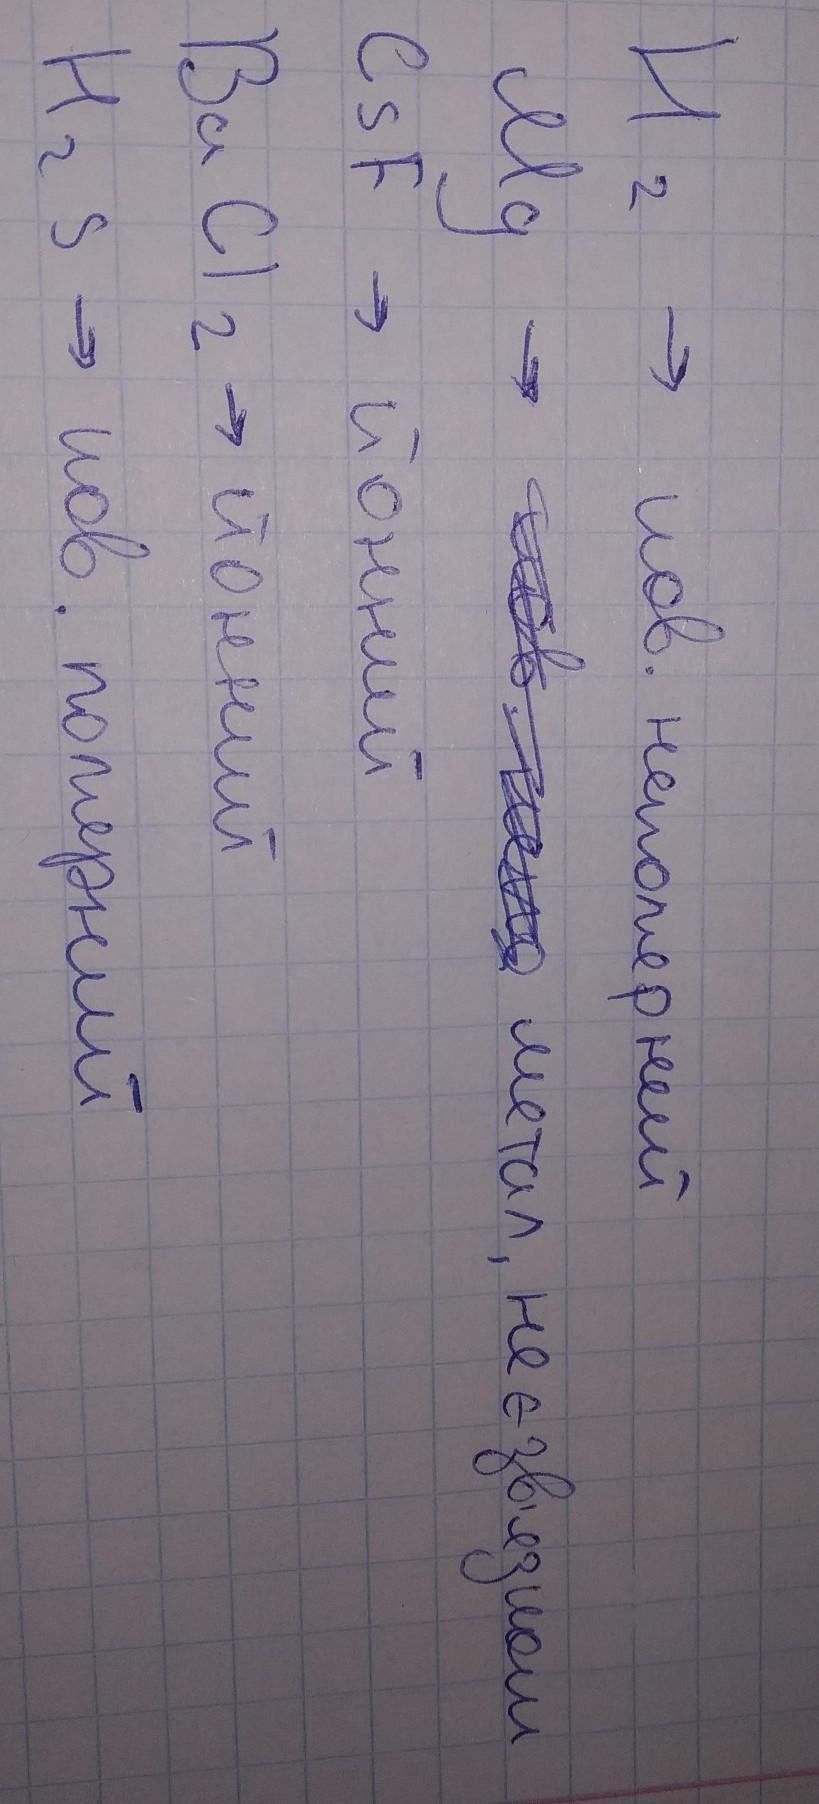 H2 → ков. неполерний
Mg → метал, не є звязком
CsF → йонний
BaCl2 → йонний
H2S → ков. полерний